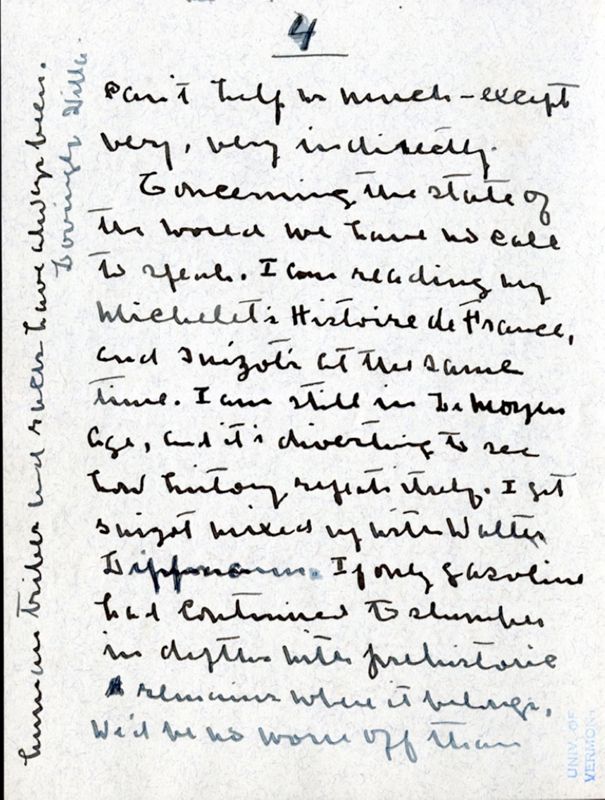 4
can't help us much – except
very, very indirectly.
Concerning the state of
the world we have no call
to speak. I am reading my
Michelet's Histoire de France,
and Guizot's at the same
time. I am still in Le Moyen
Age, and it's diverting to see
how history repeats itself. I get
Guizot mixed up with Walter
Lippmann. If only gasoline
had continued to slumber
in depths with prehistoric
remains where it belongs,
we'd be no worse off than
human tribes and races have always been.
Lovingly, Willa.
UNIV. OF
VERMONT